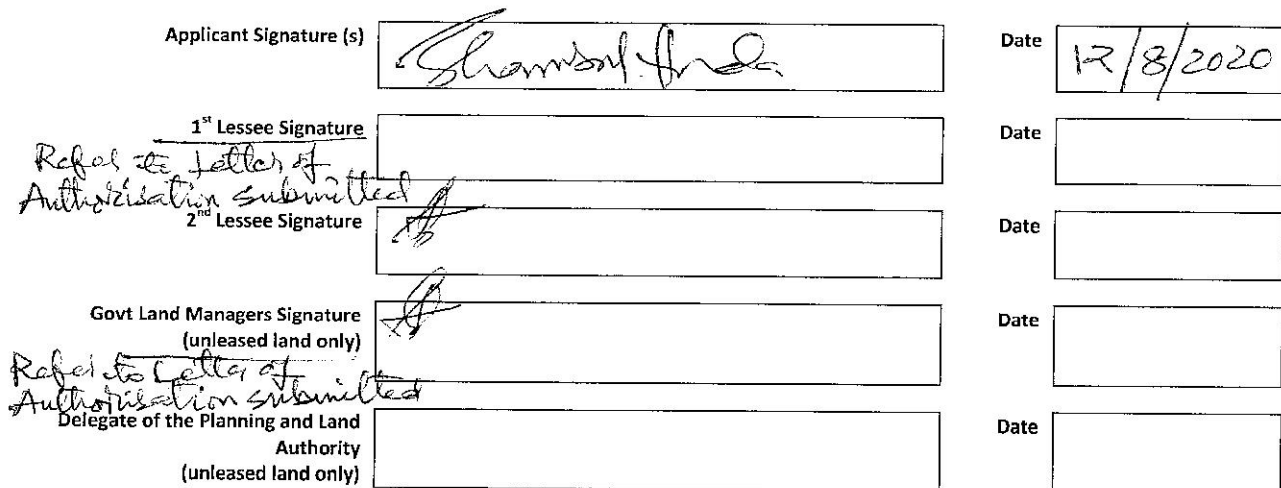 Applicant Signature (s)
Date 12/8/2020
1st Lessee Signature
Date
Refer to Letter of
Authorisation submitted
2nd Lessee Signature
Date
Govt Land Managers Signature
(unleased land only)
Date
Refer to Letter of
Authorisation submitted
Delegate of the Planning and Land
Authority
(unleased land only)
Date